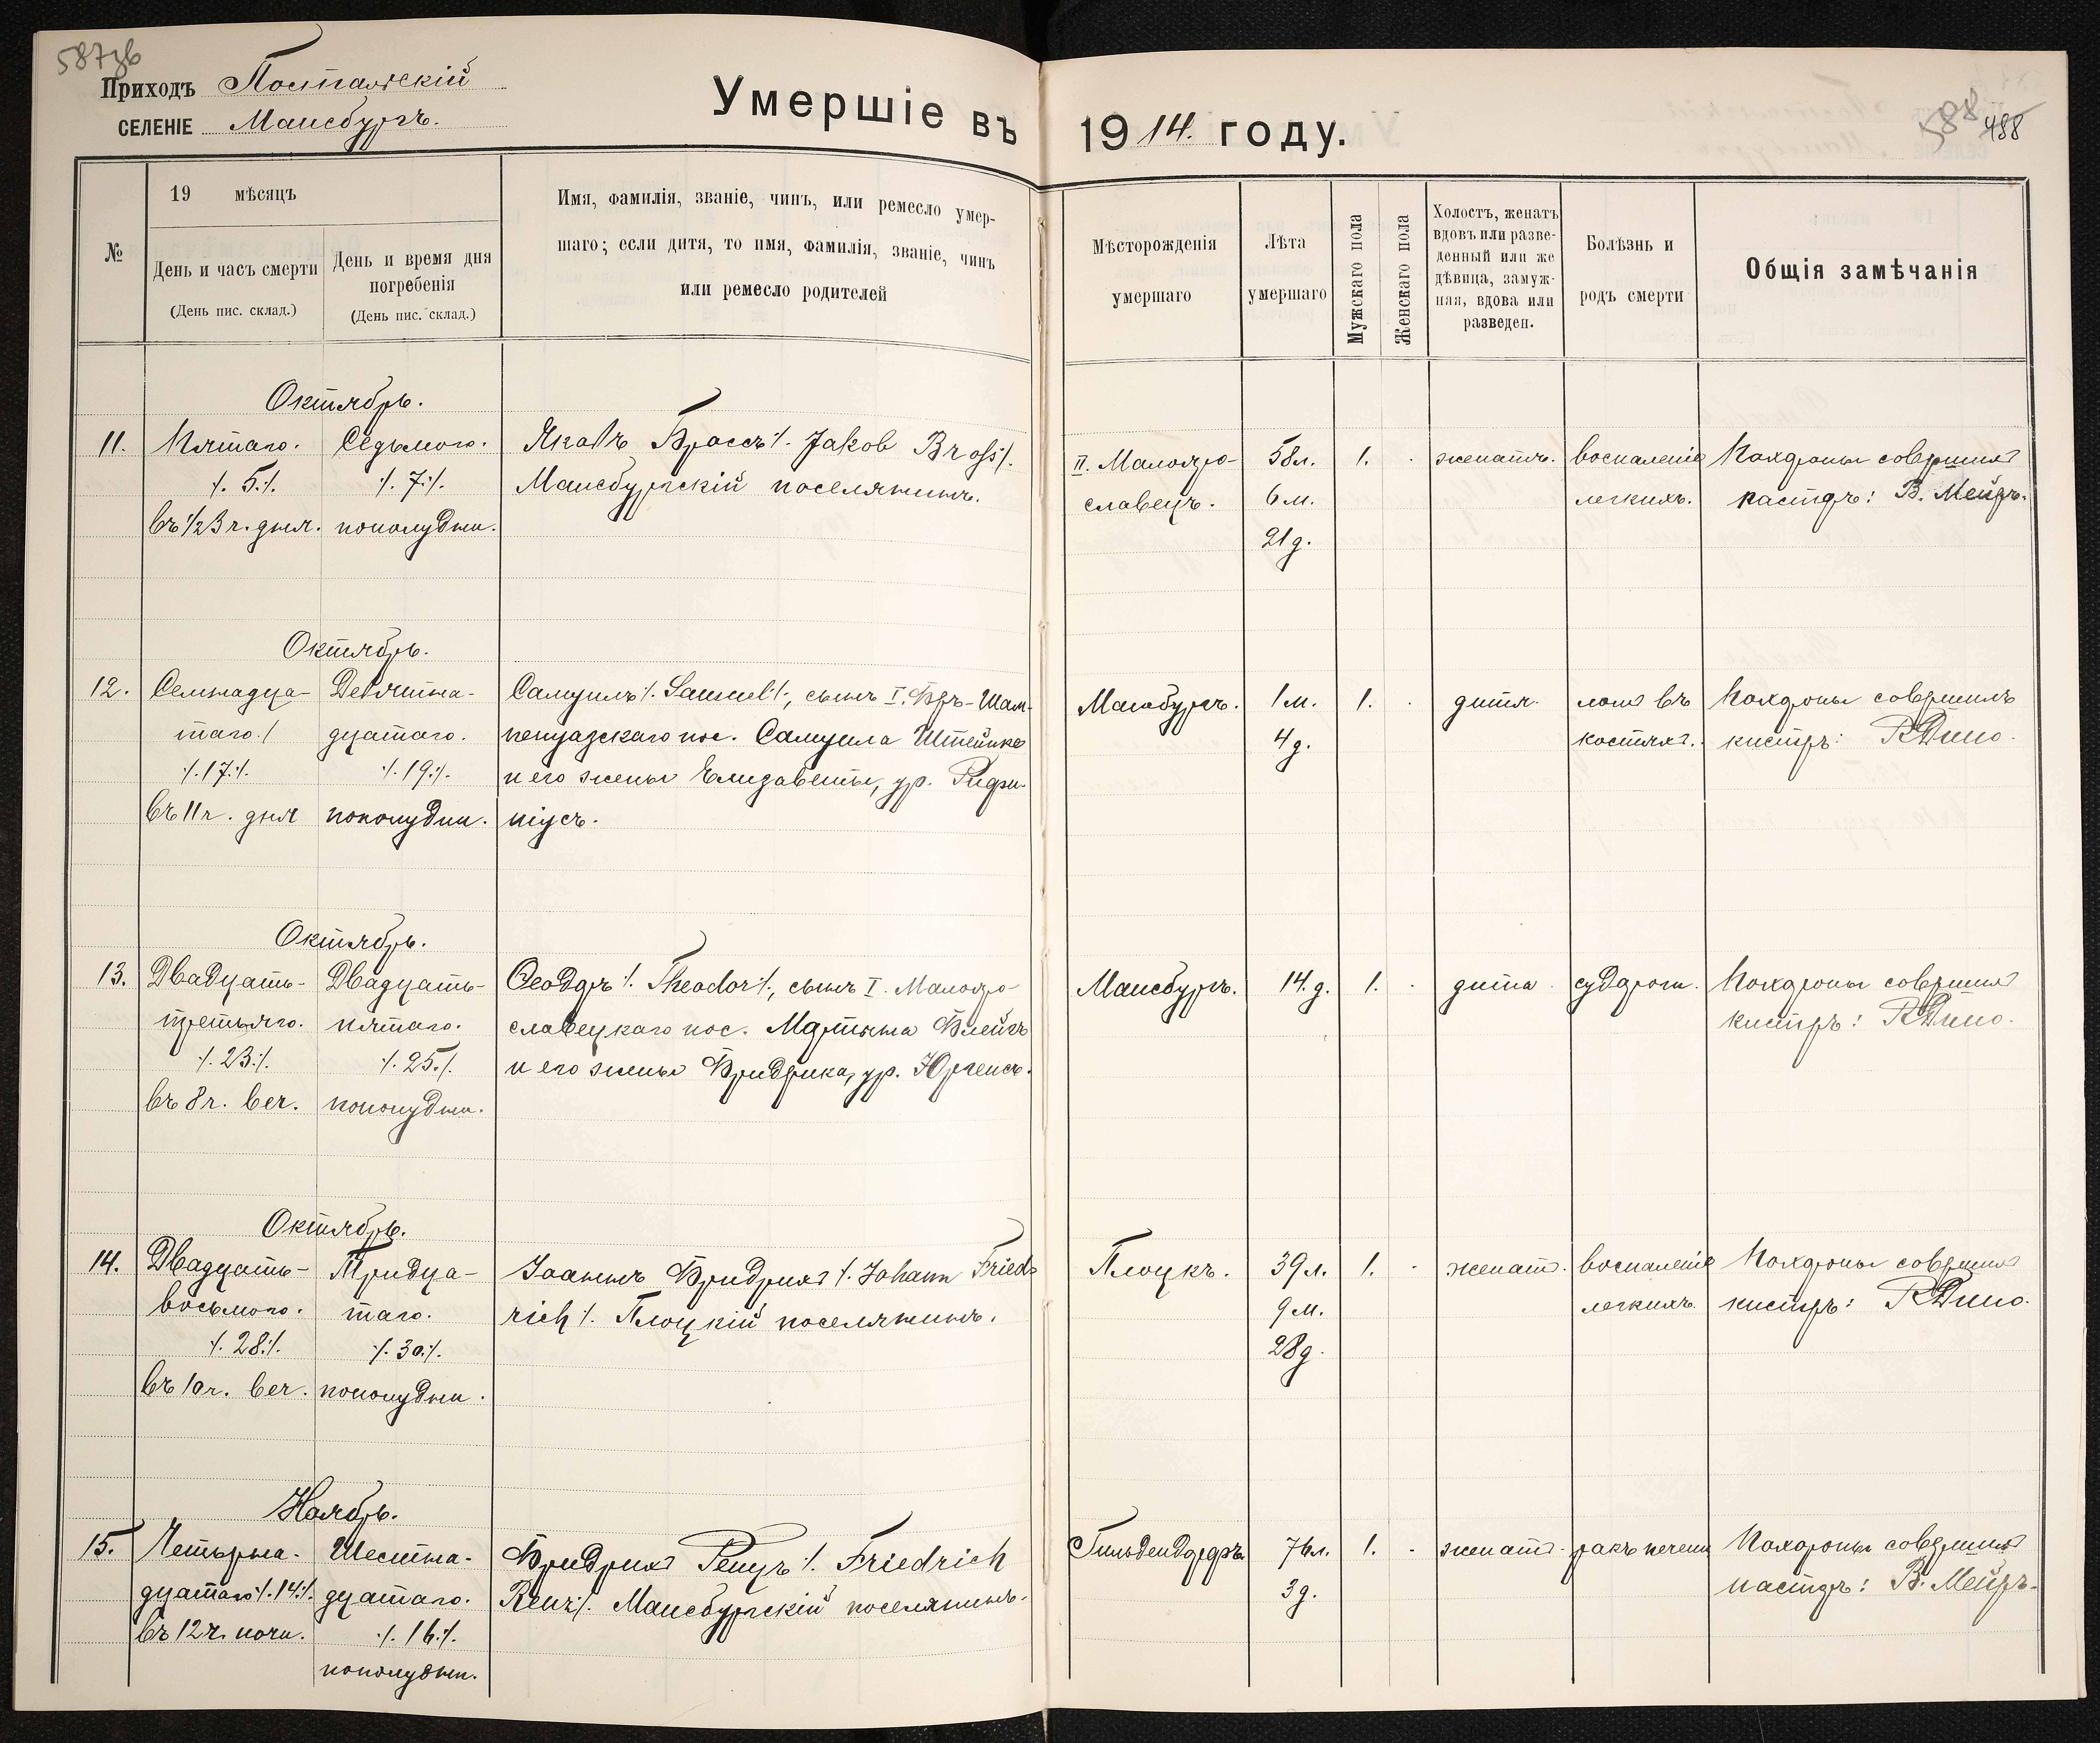 587об
588
488
Приходъ Постальскій
СЕЛЕНІЕ Мансбургъ.
Умершіе въ 1914. году.
№
19 мѣсяцъ
День и часъ смерти
(День пис. склад.)
День и время дня
погребенія
(День пис. склад.)
Имя, фамилія, званіе, чинъ, или ремесло умер-
шаго; если дитя, то имя, фамилія, званіе, чинъ
или ремесло родителей
Мѣсторожденія
умершаго
Лѣта
умершаго
Мужскаго пола
Женскаго пола
Холостъ, женатъ
вдовъ или разве-
денный или же
дѣвица, замуж-
няя, вдова или
разведен.
Болѣзнь и
родъ смерти
Общія замѣчанія
Октябрь.
11.
Пятаго.
./. 5./.
въ ½3 ч. дня.
Седьмого.
./. 7./.
пополудни.
Яковъ Броссъ ./. Jakob Broß ./.
Мансбургскій поселянинъ.
II. Малояро-
славецъ.
58 л.
6 м.
21 д.
1.
женатъ.
воспаленіе
легкихъ.
Похороны совершилъ
пасторъ: В. Мейеръ.
Октябрь.
12.
Семнадца-
таго. /
./. 17./.
въ 11 ч. дня
Девятна-
дцатаго.
./. 19./.
пополудни.
Самуилъ ./. Samuel ./., сынъ I. Фер-Шам-
пенуазскаго пос. Самуила Штейнке
и его жены Елизаветы, ур. Рифи-
ніусъ.
Мансбургъ.
1 м.
4 д.
1.
дитя.
ломъ въ
костяхъ.
Похороны совершилъ
кистеръ: Р. Дино.
Октябрь.
13.
Двадцать-
третьяго.
./. 23./.
въ 8 ч. веч.
Двадцать-
пятаго.
./. 25./.
пополудни.
Ѳеодоръ ./. Theodor ./., сынъ I. Малояро-
славецкаго пос. Мартына Флейгъ
и его жены Фридрика, ур. Юргенсъ.
Мансбургъ.
14. д.
1.
дитя.
судороги.
Похороны совершилъ
кистеръ: Р. Дино.
Октябрь.
14.
Двадцать-
восьмого.
./. 28./.
въ 10 ч. веч.
Тридца-
таго.
./. 30./.
пополудни.
Іоаннъ Фридрихъ ./. Johann Fried-
rich ./. Плоцкій поселянинъ.
Плоцкъ.
39 л.
9 м.
28 д.
1.
женатъ.
воспаленіе
легкихъ.
Похороны совершилъ
кистеръ: Р. Дино.
Ноябрь.
15.
Четырна-
дцатаго ./. 14./.
въ 12 ч. ночи.
Шестна-
дцатаго.
./. 16./.
пополудни.
Фридрихъ Ренцъ ./. Friedrich
Renz ./. Мансбургскій поселянинъ.
Гильдендорфъ
76 л.
3 д.
1.
женатъ.
ракъ печени
Похороны совершилъ
пасторъ: В. Мейеръ.